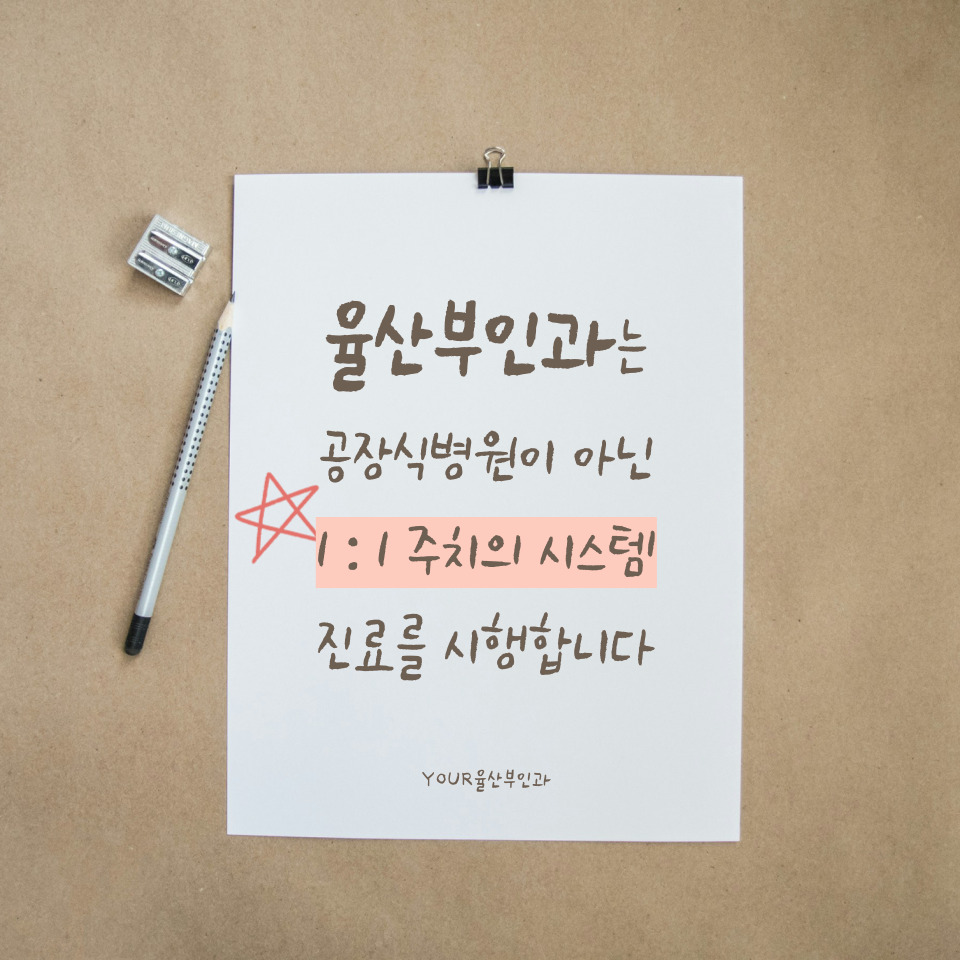 율산부인과는
공장식병원이 아닌
1:1 주치의 시스템
진료를 시행합니다
YOUR율산부인과